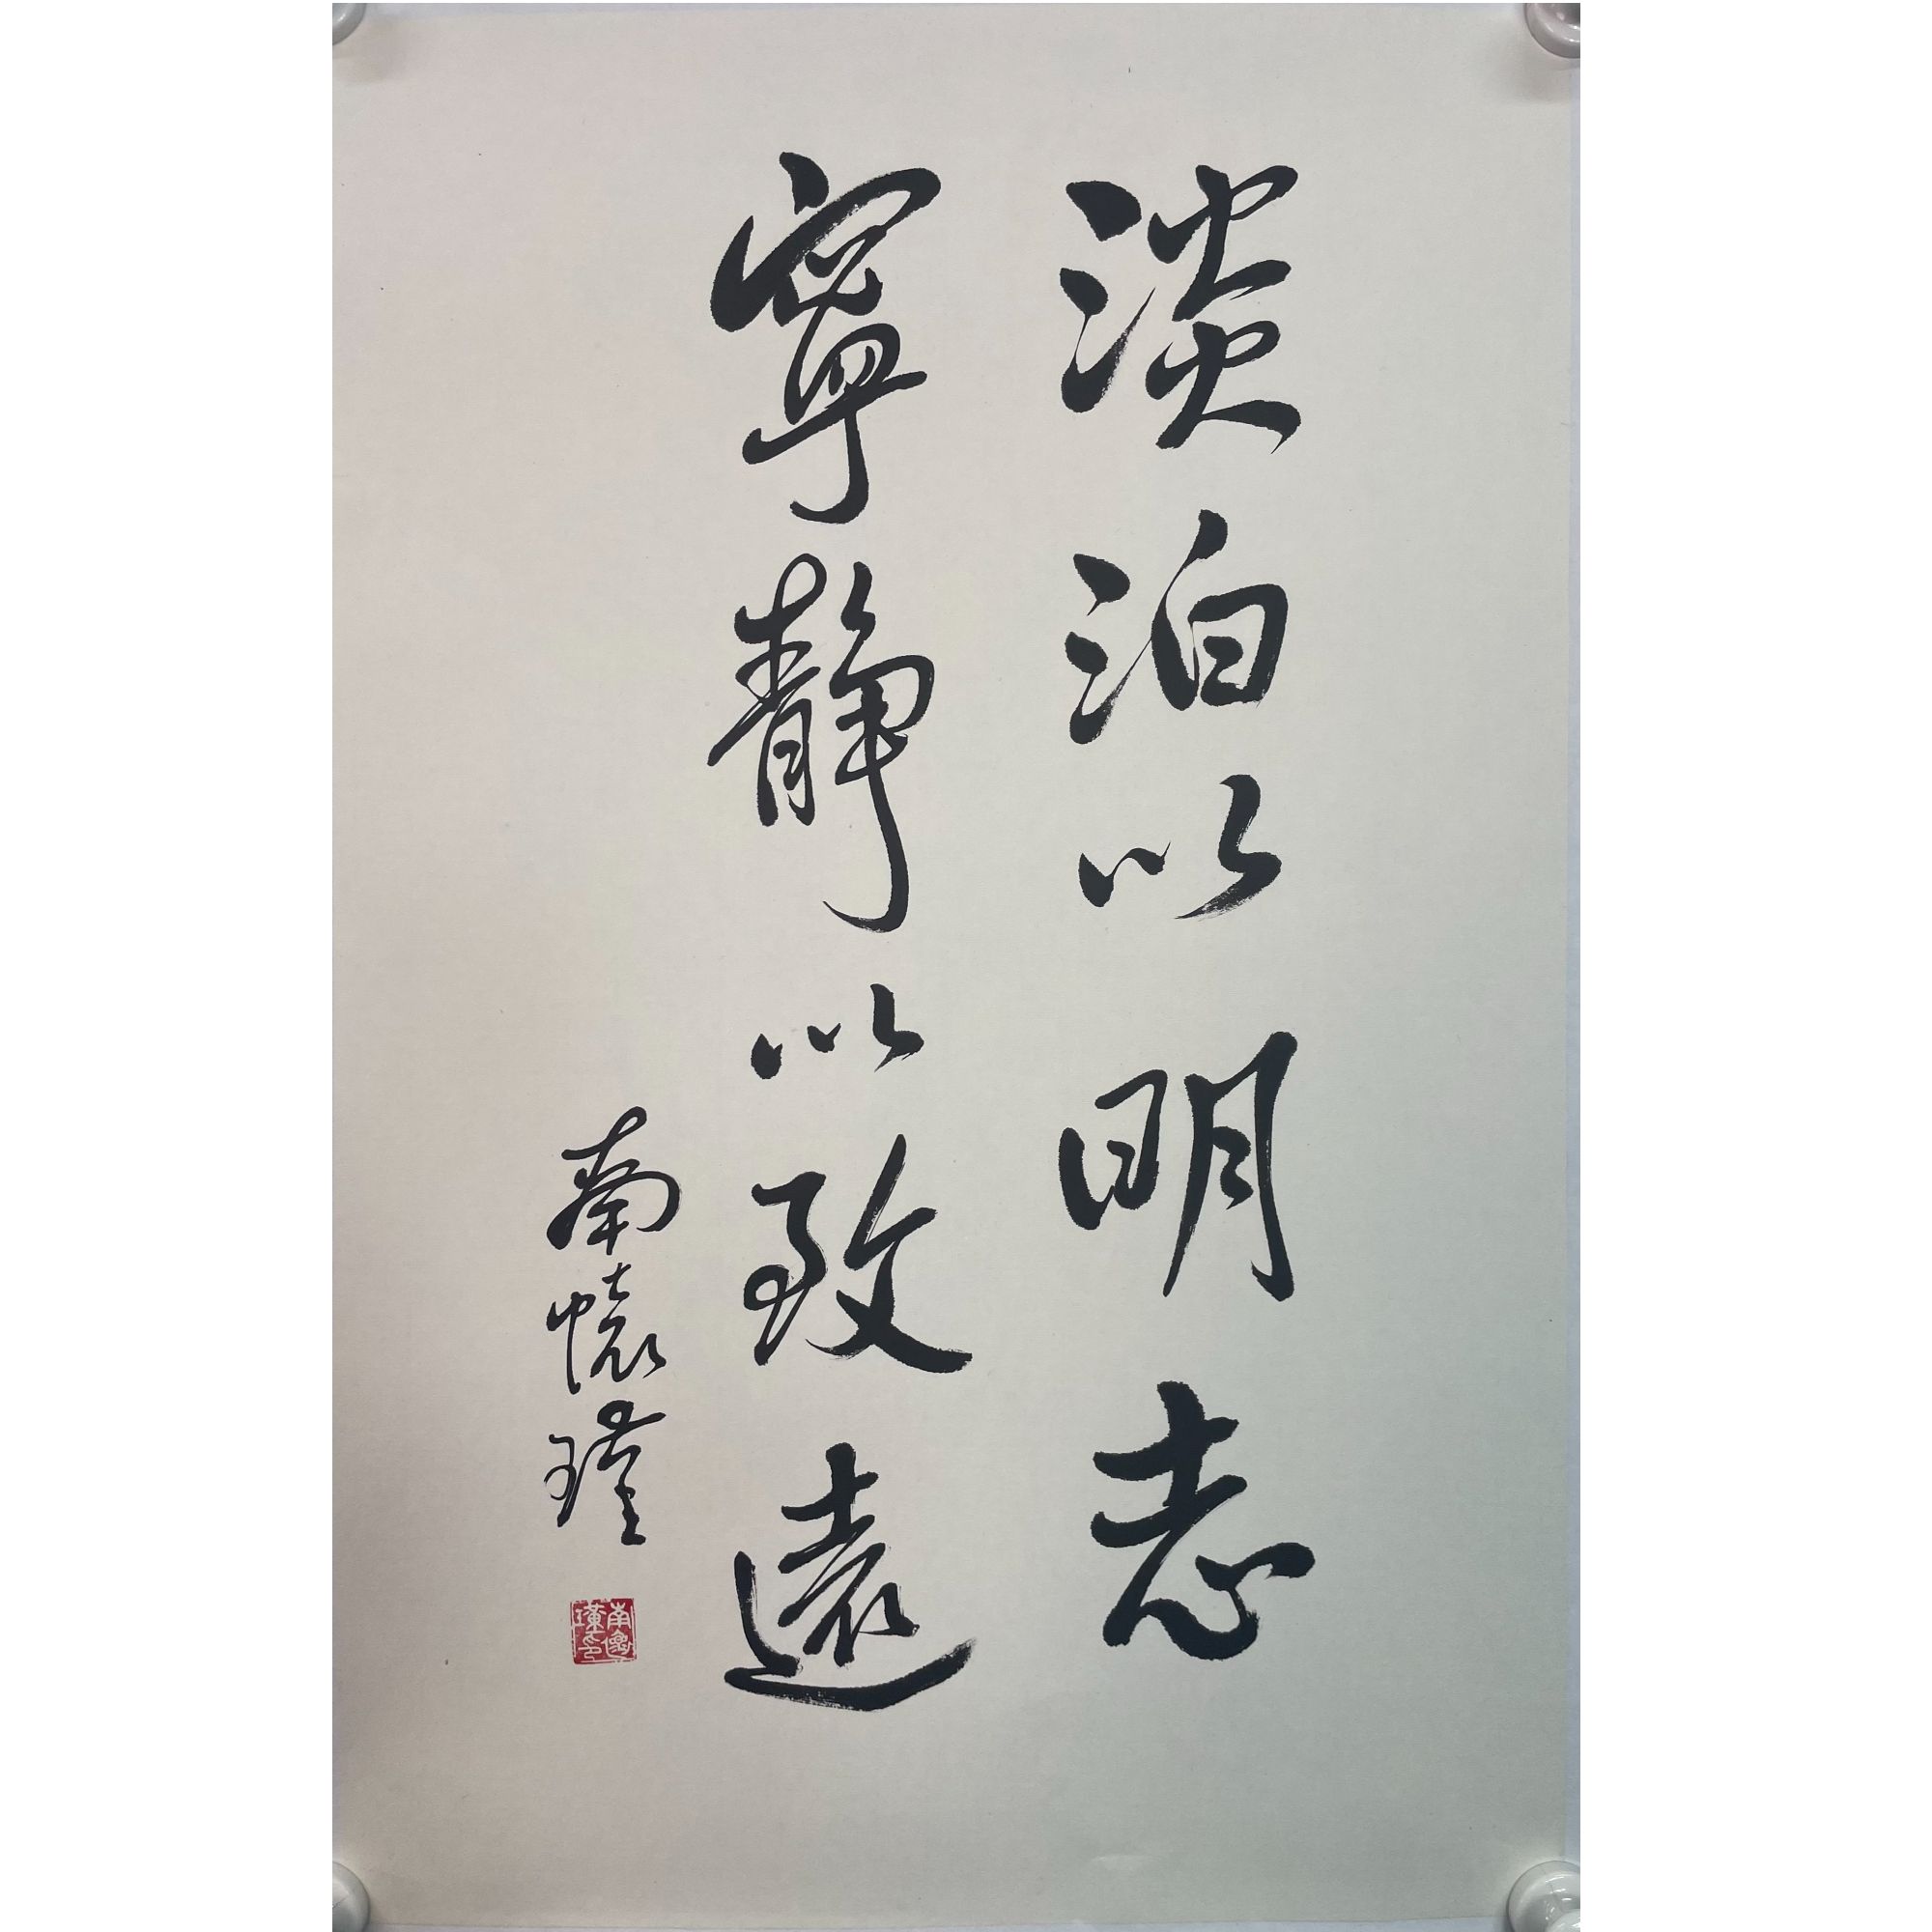 淡泊以明志
寧靜以致遠
南懷瑾
南懷瑾印